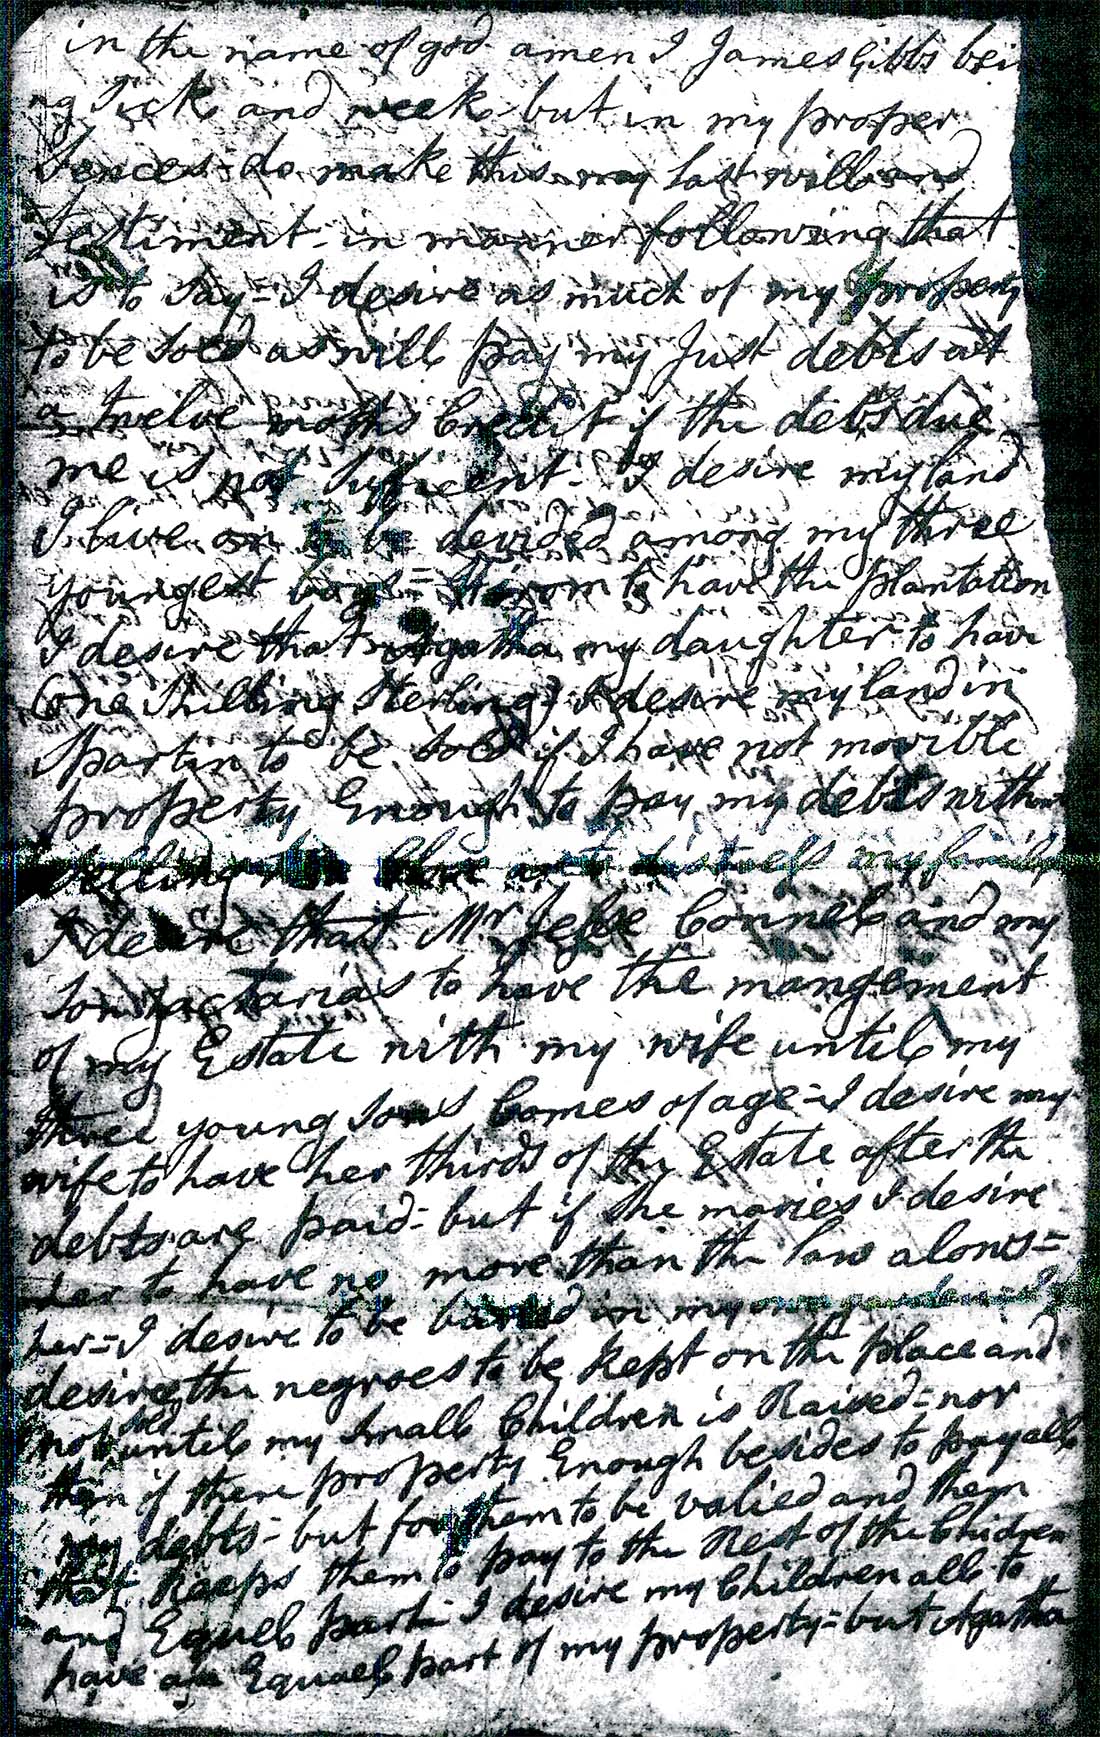 in the name of god amen I James Gibbs bei
ng Sick and week but in my proper
Sences = do make this my last will and
testiment - in manner following that
is to Say = I desire as much of my property
to be Sold as will pay my Just debts at
a twelve moths Credit if the debts due =
me is not Suffieent = I desire my land
I live on to be devided among my three
youngest boys = to have the plantation
I desire that Agatha my daughter to have
(one Shilling Sterling) I desire my land in
Spartin to be Sold if I have not movible
property Enough to pay my debts without
distress my family
I desire that Mr Jesse Connel and my
Son Zacharias to have the mangement
of my Estate with my wife until my
three young Sons Comes of age = I desire my
wife to have her thirds of the Estate after the
debts are paid = but if She maries I desire
her to have no more than the law alows =
her = I desire to be buried in my own
desire the negroes to be kept on the place and
not sold until my Small Children is Raised = nor
then if there property Enough besides to pay all
my debts = but for them to be valied and them
that Keeps them to pay to the Rest of the Children
and Equel part = I desire my Children all to
have an Equael part of my property = but Agatha